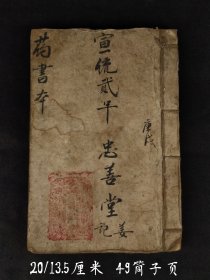 宣统贰年
庚戌
忠善堂
姜记
書本
20/13.5厘米 49筒子页